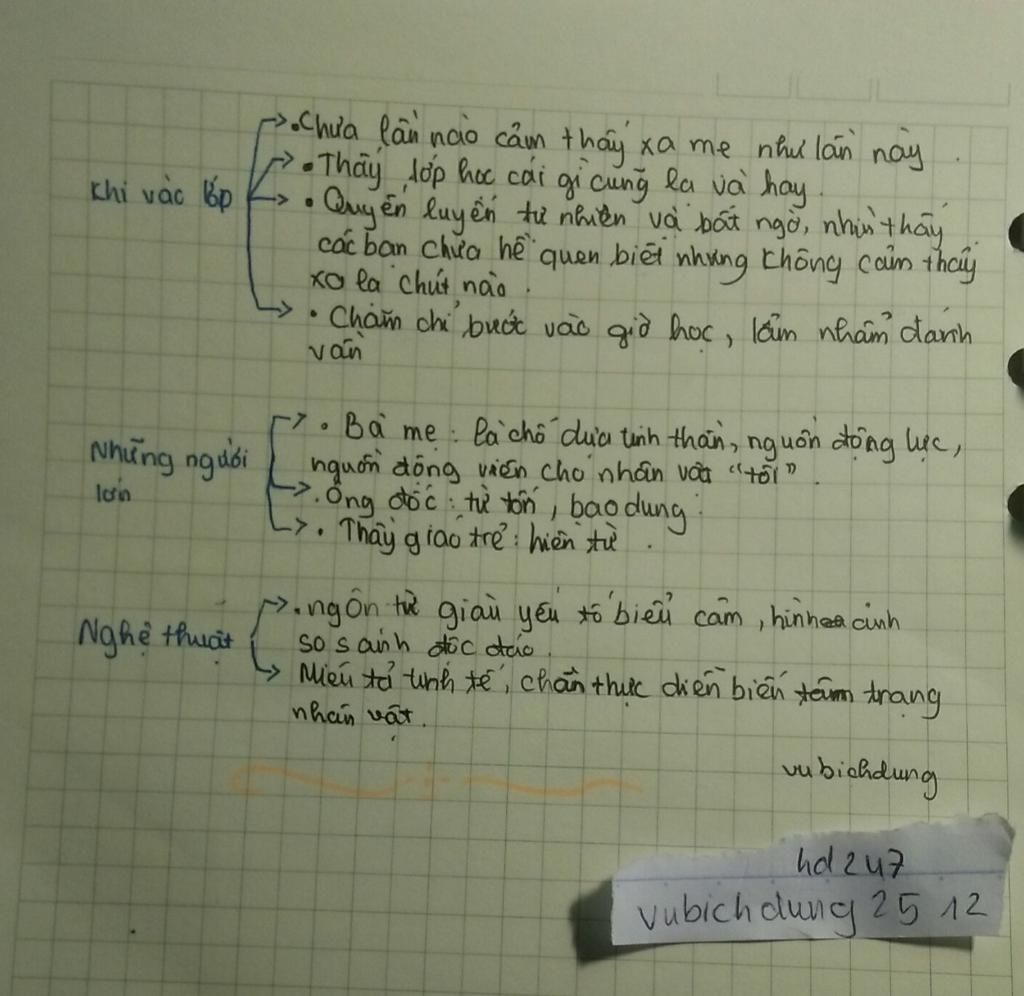 .Chưa lần nào cảm thấy xa mẹ như lần này.
Khi vào lớp
• Thấy lớp học cái gì cũng lạ và hay.
• Quyến luyến tự nhiên và bất ngờ, nhìn thấy
các bạn chưa hề quen biết nhưng không cảm thấy
xa lạ chút nào.
• Chăm chỉ bước vào giờ học, lẩm nhẩm đánh
vần
Những người
lớn
• Bà mẹ: là chỗ dựa tinh thần, nguồn động lực,
nguồn động viên cho nhân vật "tôi".
. Ông đốc: từ tốn, bao dung
• Thầy giáo trẻ: hiền từ.
Nghệ thuật
.ngôn từ giàu yếu tố biểu cảm, hình ảnh
so sánh độc đáo.
Miêu tả tinh tế, chân thực diễn biến tâm trạng
nhân vật.
vubichdung
hd247
vubichdung 25 12